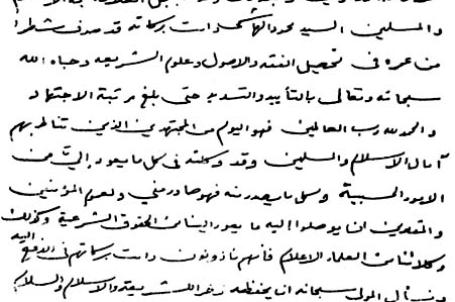 والمسلمين السيد محمد الهاشمي دامت بركاته قد صرف شطرا
من عمره فى تحصيل الفقه والاصول وعلوم الشريعه وحباه الله
سبحانه وتعالى بالتأييد والتسديد حتى بلغ مرتبة الاجتهاد
والحمد لله رب العالمين فهو اليوم من المجتهدين الذين تناط بهم
آمال الاسلام والمسلمين وقد وكلته فى كل ما يعود إليّ من
الامور الحسبية وكل ما يصدر منه فهو صادر مني ولعموم المؤمنين
والمقلدين ان يوصلوا اليه ما يعود الينا من الحقوق الشرعية وكذلك
وكلائنا من العلماء الاعلام فأنهم مأذونون دامت بركاتهم فى الدفع اليه
ونسأل المولى سبحانه ان يحفظه ذخرا للشريعة والاسلام والسلام